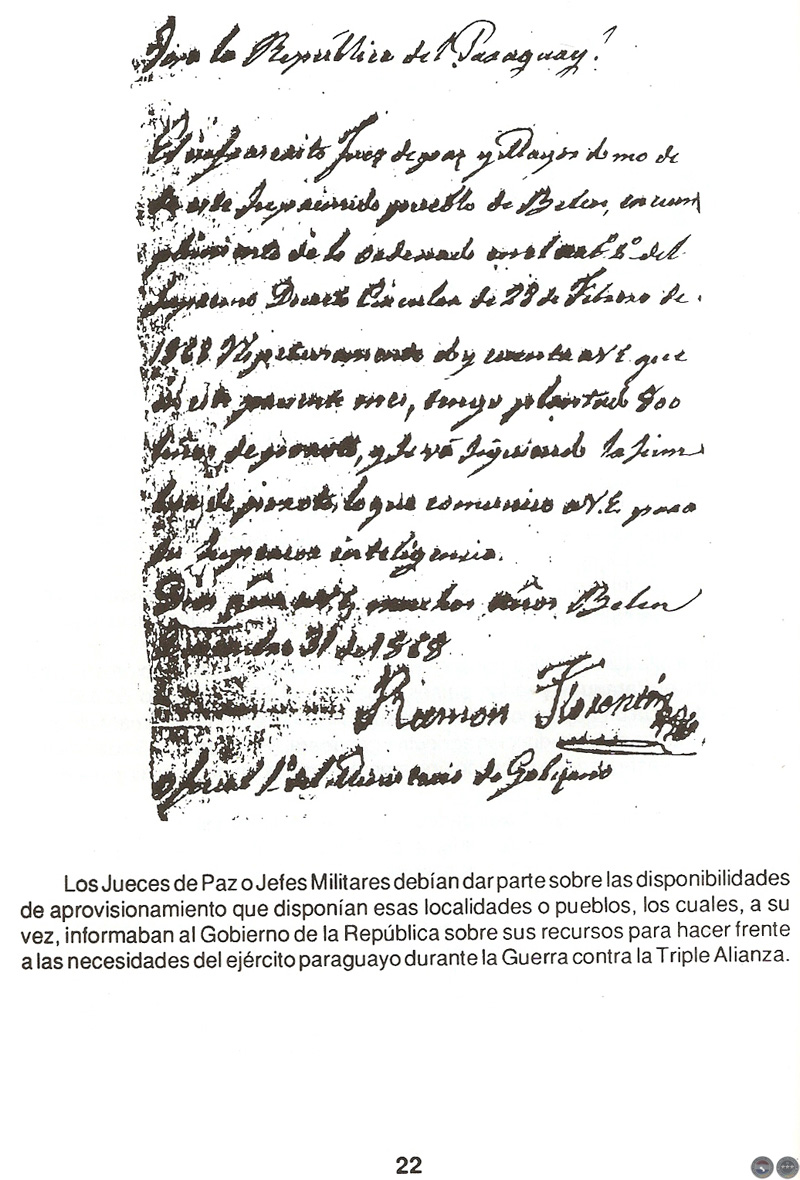 Viva la República del Paraguay!
El infrascrito Juez de paz y Mayordomo de
este Suprimido pueblo de Belen, en cum
plimiento de lo ordenado en el art.º 2.º del
Supremo Decreto Circular de 28 de Febrero de
1868 Respetuosamente doy cuenta a V.E. que
en el presente mes, tengo plantado 800
liños de poroto, y se vá siguiendo la siem
bra de poroto, lo que comunico a V.E. para
su Superior inteligencia.
Dios gũe a V.E. muchos años Belen
31 de 1868
Ramon Florentín
oficial 1º del Ministerio de Gobierno
Los Jueces de Paz o Jefes Militares debían dar parte sobre las disponibilidades
de aprovisionamiento que disponían esas localidades o pueblos, los cuales, a su
vez, informaban al Gobierno de la República sobre sus recursos para hacer frente
a las necesidades del ejército paraguayo durante la Guerra contra la Triple Alianza.
22